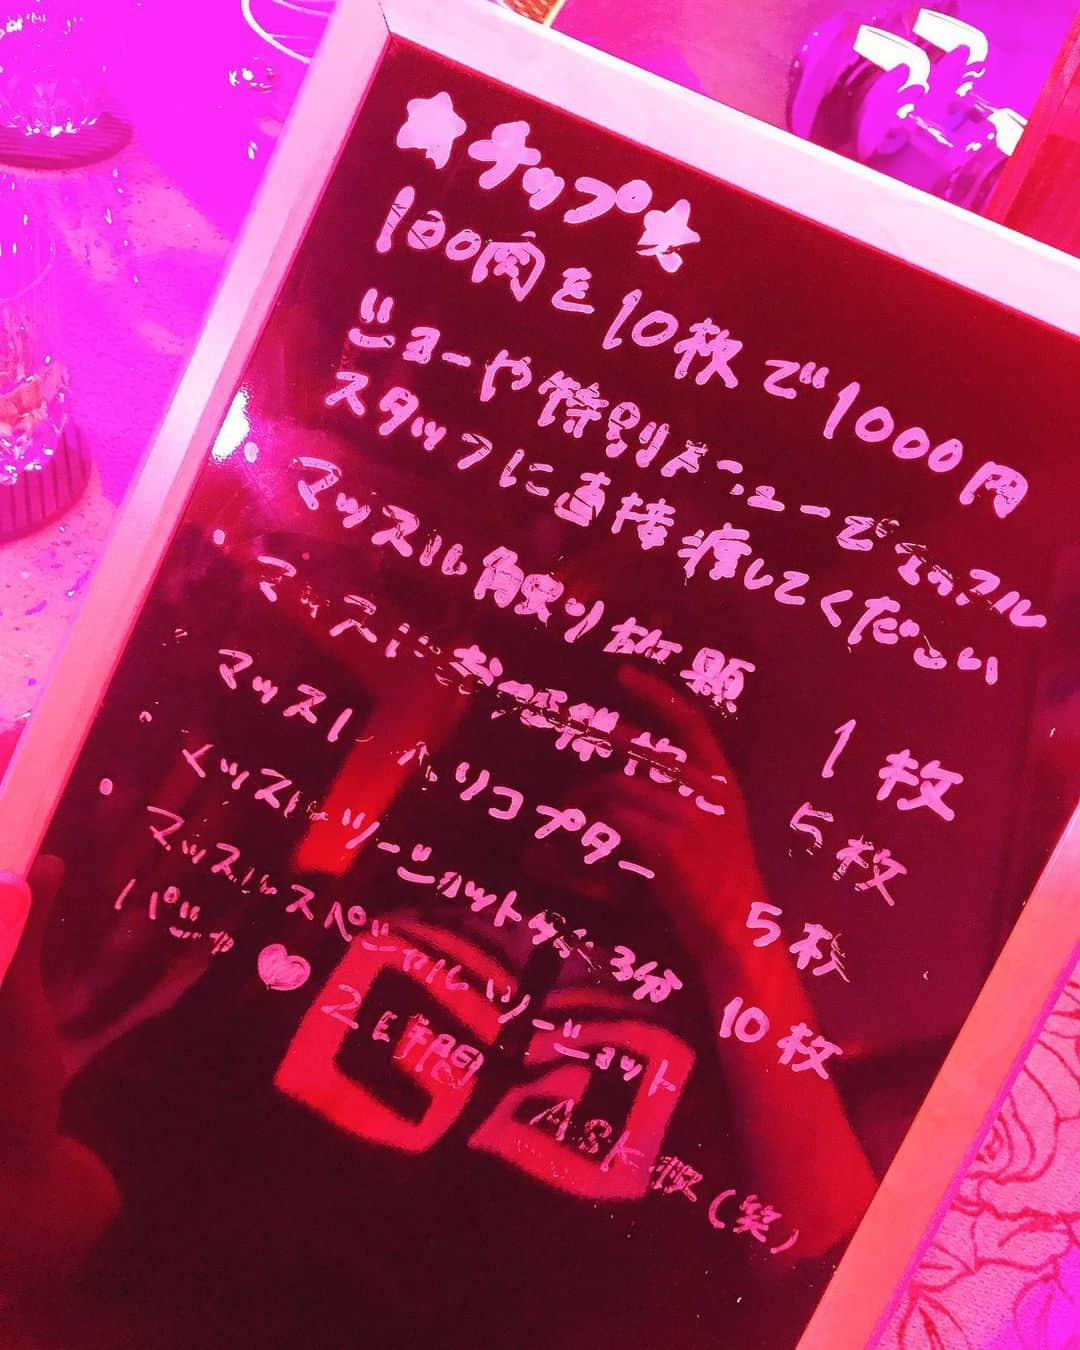 ★チップ★
100肉を10枚で1000円
ショーや特別メニューでマッスル
スタッフに直接渡してください
・マッスル触り放題 1枚
・マッスルお姫様抱っこ 5枚
・マッスルヘリコプター 5枚
・マッスルツーショットタイム3分 10枚
・マッスルスペシャルツーショット
パジャ♥2時間 ASK枚(笑)